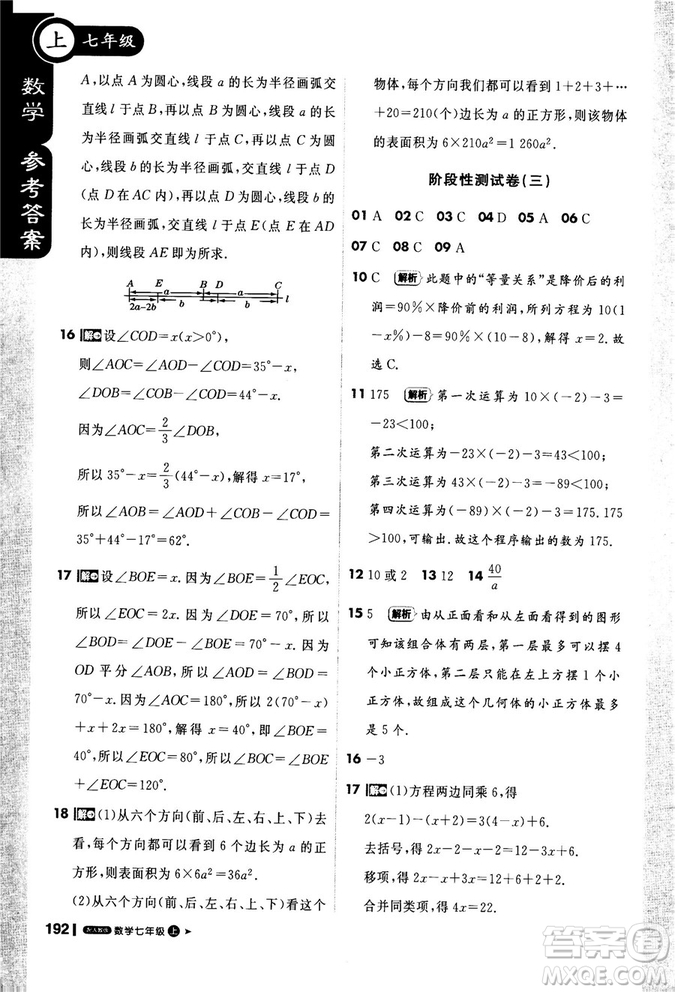 上 七年级
数学 参考答案
A,以点 A 为圆心,线段 a 的长为半径画弧交
直线 l 于点 B,以点 B 为圆心,线段 a 的长
为半径画弧交直线 l 于点 C,再以点 C 为圆
心,线段 b 的长为半径画弧,交直线 l 于点 D
(点 D 在 AC 内),再以点 D 为圆心,线段 b
的长为半径画弧,交直线 l 于点 E(点 E 在 AD
内),则线段 AE 即为所求.
A E B D C
a a l
2a-2b b b
16 解 设∠COD=x(x>0°),
则∠AOC=∠AOD-∠COD=35°-x,
∠DOB=∠COB-∠COD=44°-x.
因为∠AOC=2/3∠DOB,
所以 35°-x=2/3(44°-x),解得 x=17°,
所以∠AOB=∠AOD+∠COB-
∠COD=35°+44°-17°=62°.
17 解 设∠BOE=x.因为∠BOE=1/2∠EOC,
所以∠EOC=2x.因为∠DOE=70°,所以
∠BOD=∠DOE-∠BOE=70°-x.因为
OD 平分∠AOB,所以∠AOB=2∠BOD=
2(70°-x).因为∠AOC=180°,所以 2(70°-x)
+x+2x=180°,解得 x=40°,即∠BOE=40°,
所以∠EOC=80°,所以∠BOC=∠BOE+
∠EOC=120°.
18 解 (1)从六个方向(前、后、左、右、上、下)去
看,每个方向都可以看到 6 个边长为 a 的正
方形,所以面积为 6×6a²=36a².
(2)从六个方向(前、后、左、右、上、下)去看这个
192 配人教版 数学七年级 上
物体,每个方向我们都可以看到 1+2+3+…
+20=210(个)边长为 a 的正方形,则该物体
的表面积为 6×210a²=1 260a².
阶段性测试卷(三)
01 A 02 C 03 C 04 D 05 A 06 C
07 C 08 C 09 A
10 C 解析 此题中的“等量关系”是降价后的利
润=90%×降价前的利润,所列方程为 10(1-
x%)-8=90%×(10-8),解得 x=2.故
选 C.
11 175 解析 第一次运算为 10×(-2)-3=
-23<100;
第二次运算为-23×(-2)-3=43<100;
第三次运算为 43×(-2)-3=-89<100;
第四次运算为(-89)×(-2)-3=175.175>
100,可输出.故这个程序输出的数为 175.
12 10 或 2 13 12 14 40/a
15 5 解析 由从正面看和从左面看得到的图形
可知该组合体有两层,第一层最多能摆 4
个小正方体,第二层只能在左上方摆 1 个小
正方体,故组成这个几何体的小正方体最多
是 5 个.
16 -3
17 解 (1)方程两边同乘 6,得
2(x-1)-(x+2)=3(4-x)+6.
去括号,得 2x-2-x-2=12-3x+6.
移项,得 2x-x+3x=12+6+2+2.
合并同类项,得 4x=22.
答案圈
MXQE.COM